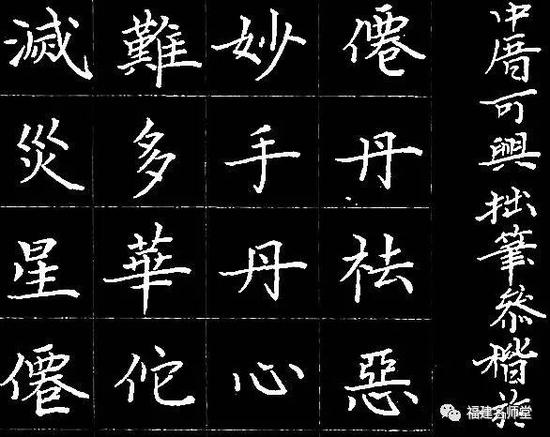 中厝可興拙筆恭楷於
僊丹祛惡
妙手丹心
難多華佗
滅災星僊
福建名师堂